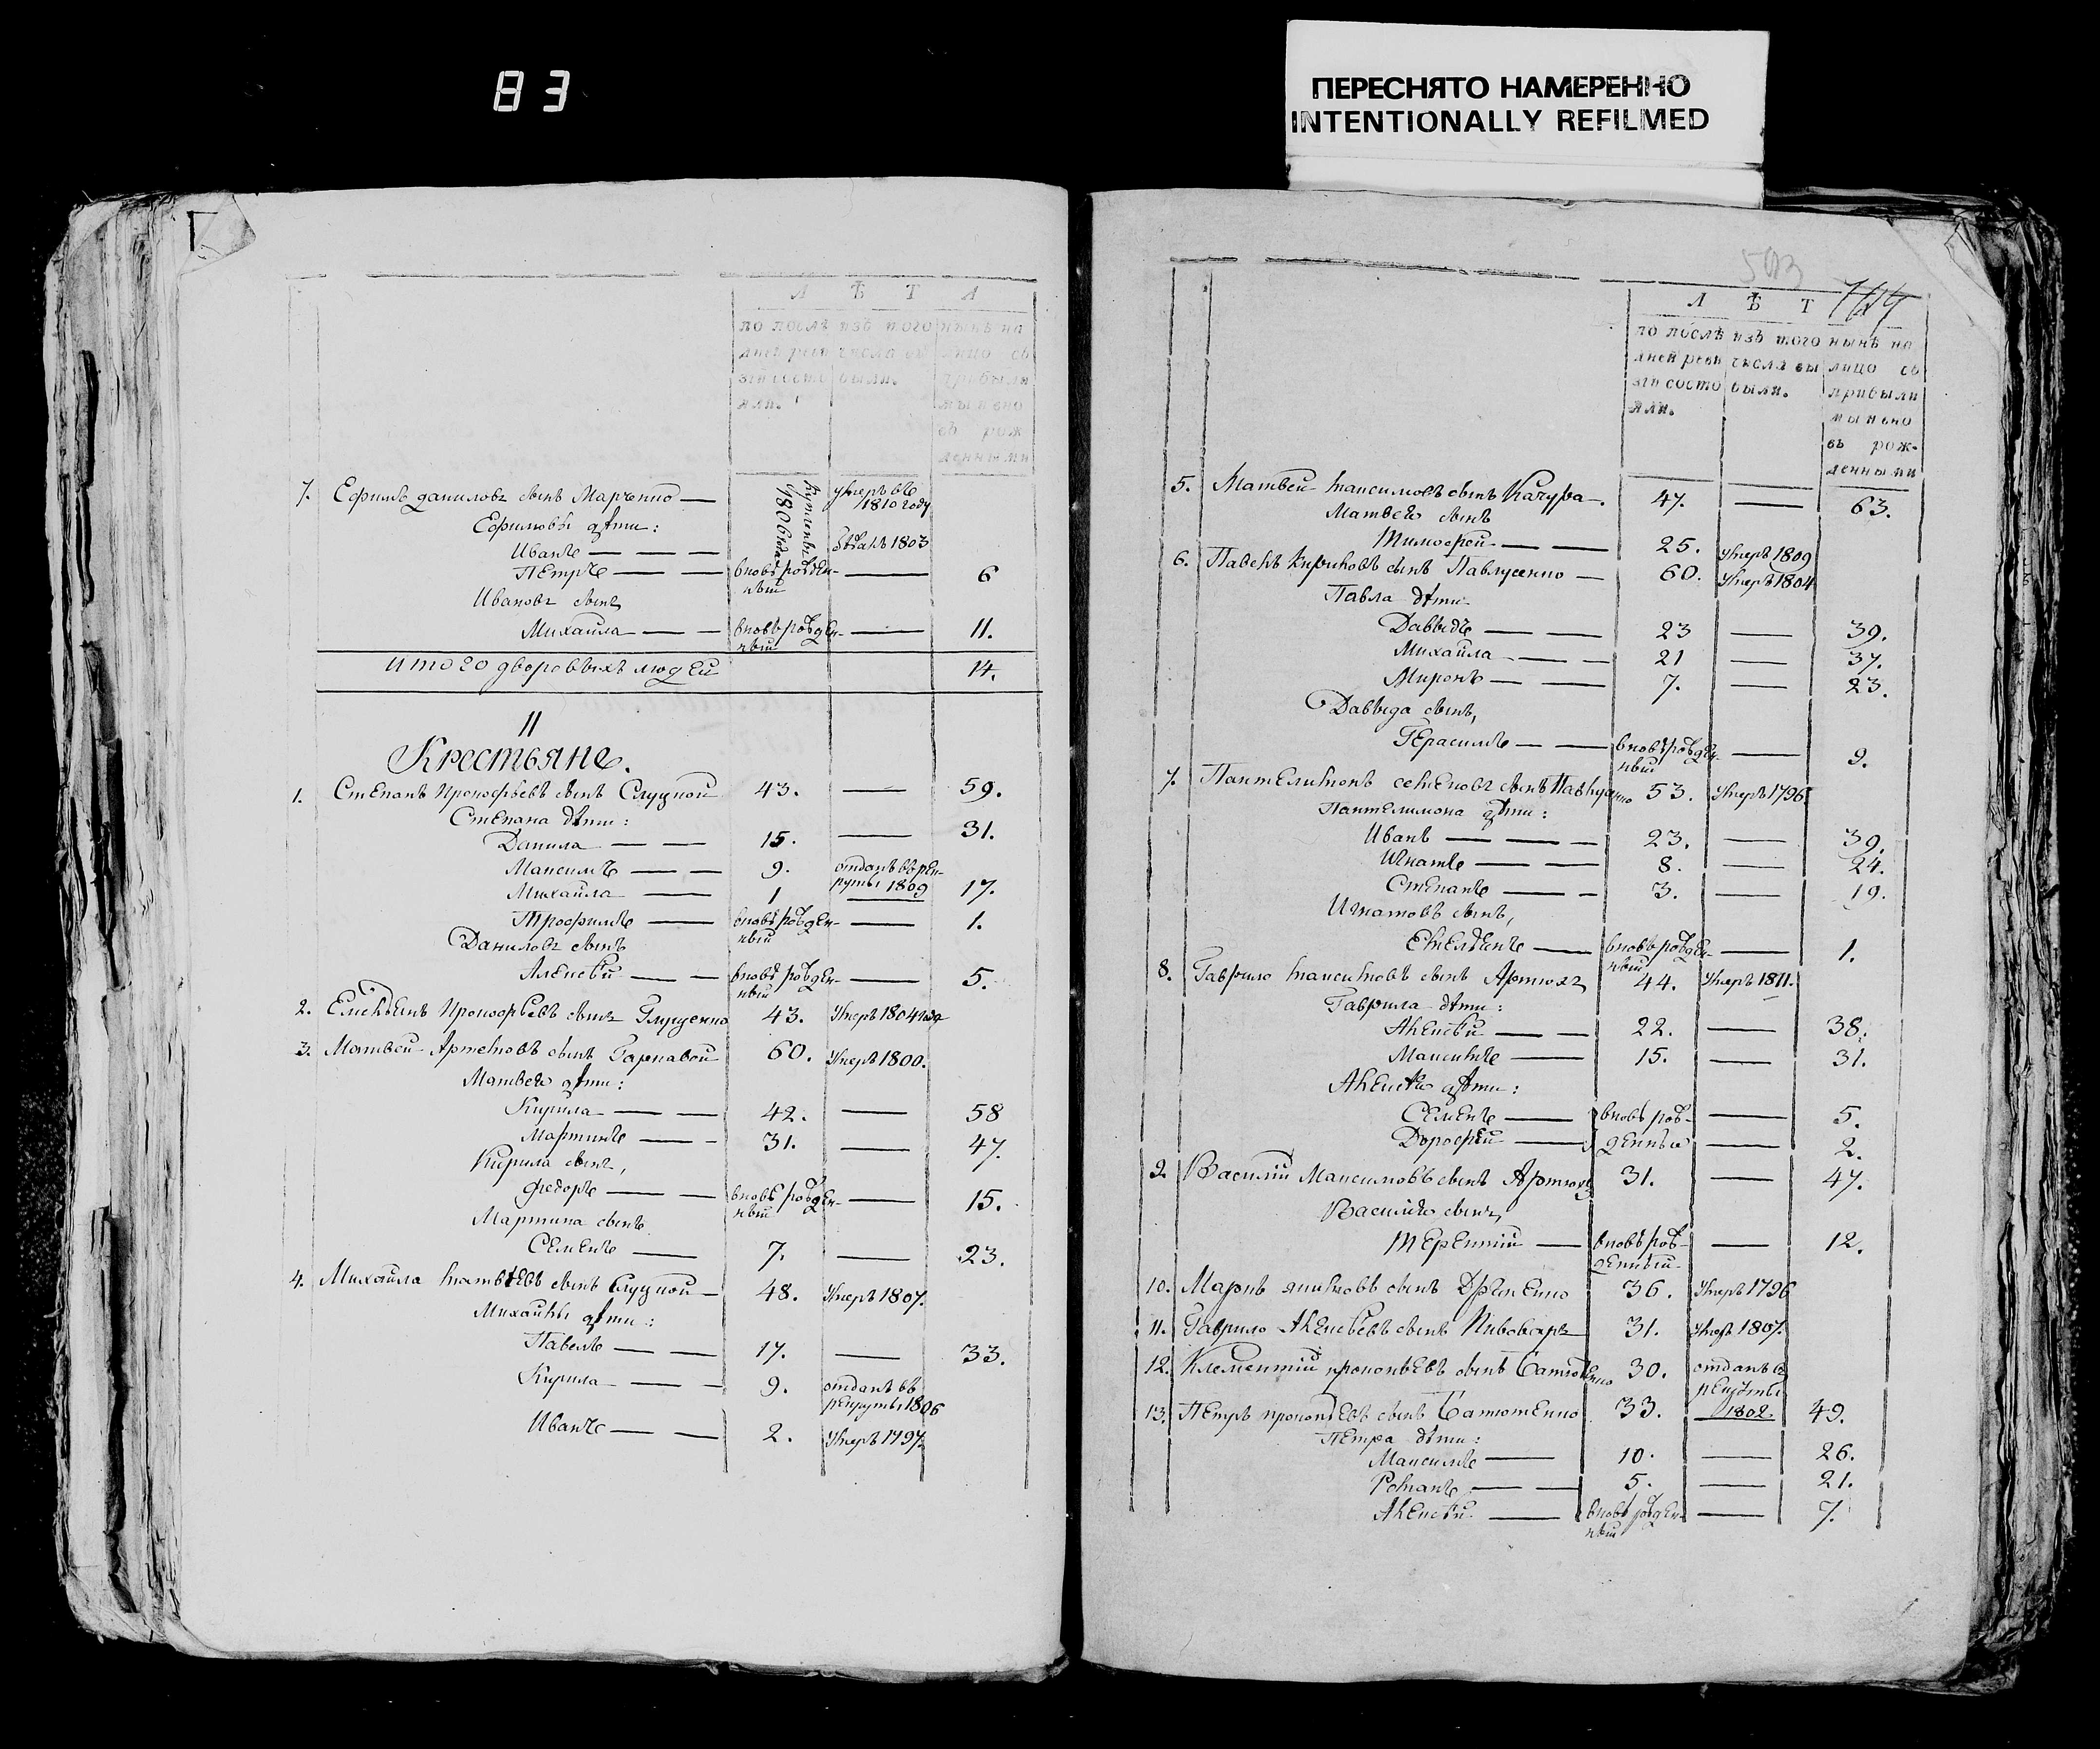 83
ПЕРЕСНЯТО НАМЕРЕННО
INTENTIONALLY REFILMED
Л Ѣ Т А
по послѣ изъ того нынѣ на
дней реви числа вы лицо съ
зіи состо были. прибыли
яли. мы и вно
въ рож
денными
7. Ефимъ даниловъ сынъ Марченко
купленны 1806 года
умеръ въ 1810 году
Ефимовы дѣти:
Иванъ — — — бѣжалъ 1803
Петръ — — вновь рожден-ный — 6
Ивановъ сынъ
Михайла — — вновь рожден-ный — 11.
Итого дворовыхъ людей 14.
II
Крестьяне.
1. Степанъ Прокофьевъ сынъ Слуцкой 43. — 59.
Степана дѣти:
Данила — — 15. — 31.
Максимъ — — 9. отданъ въ рек-руты 1809
Михайла — 1 — 17.
Трофимъ — вновь рожден-ный — 1.
Даниловъ сынъ
Алексѣй — — вновь рожден-ный — 5.
2. Емельянъ Прокофьевъ сынъ 43. Умеръ 1804 года
3. Матвей Артемовъ сынъ Гаркавой 60. Умеръ 1800.
Матвея дѣти:
Кирила — — 42. — 58
Мартинъ — — 31. — 47.
Кирила сынъ,
Федоръ — — вновь рожден-ный — 15.
Мартина сынъ
Семенъ — 7. — 23.
4. Михайла матвѣевъ сынъ Слуцкой — 48. Умеръ 1807.
Михайлы дѣти:
Павелъ — — 17. — 33.
Кирила — — 9. отданъ въ рекруты 1806
Иванъ — — 2. Умеръ 1797.
503
Л Ѣ Т
по послѣ изъ того нынѣ на
дней реви числа вы лицо съ
зіи состо были. прибыли
яли. мы и вно
въ рож-
денными
5. Матвей максимовъ сынъ Качура — 47. — 63.
Матвея сынъ
Тимофей — — 25. умеръ 1809
6. Павелъ сынъ Павлусенко — 60. Умеръ 1804
Павла дѣти
Давыдъ — — 23 — 39.
Михайла — — 21 — 37.
Миронъ — — 7. — 23.
Давыда сынъ,
Герасимъ — — вновь рожден-ный — 9.
7. Пантелимонъ семеновъ сынъ Павлусенко 53. Умеръ 1796
Пантелимона дѣти:
Иванъ — — — 23. — 39.
Игнатъ — — 8. — 24.
Степанъ — — 3. — 19.
Игнатовъ сынъ,
Емельянъ — вновь рожден-ный — 1.
8. Гаврило максимовъ сынъ Артюхъ 44. Умеръ 1811.
Гаврила дѣти:
Алексѣй — — 22. — 38.
Максимъ — 15. — 31.
Алексѣя дѣти:
Семенъ — вновь рож- — 5.
Дорофей — денные — 2.
9. Василій Максимовъ сынъ Артюхъ 31. — 47.
Василія сынъ,
Терентій — вновь рож-денный — 12.
10. Марко сынъ 36. Умеръ 1796
11. Гаврило Алексѣевъ сынъ Пивоваръ 31. Умеръ 1807.
12. Клементій прокопьевъ сынъ 30. отданъ въ рекруты 1802.
13. Петръ прокопьевъ сынъ Батютенко 33. — 49.
Петра дѣти:
Максимъ — 10. — 26.
Романъ — — 5. — 21.
Алексѣй — вновь рожден-ный — 7.